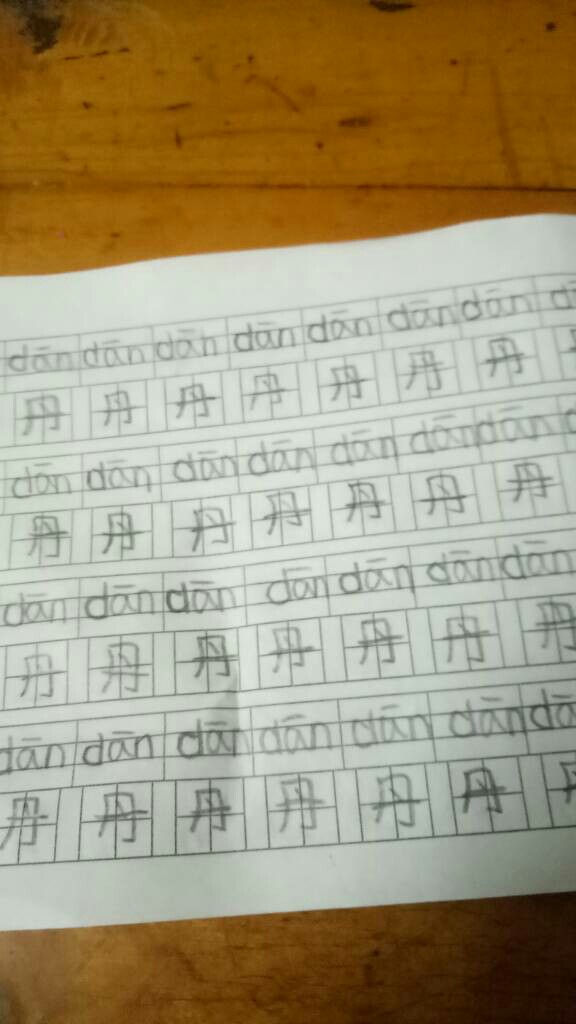 dān dān dān dān dān dān dān
丹 丹 丹 丹 丹 丹 丹
dān dān dān dān dān dān dān
丹 丹 丹 丹 丹 丹 丹
dān dān dān dān dān dān dān
丹 丹 丹 丹 丹 丹 丹
dān dān dān dān dān dān dā
丹 丹 丹 丹 丹 丹